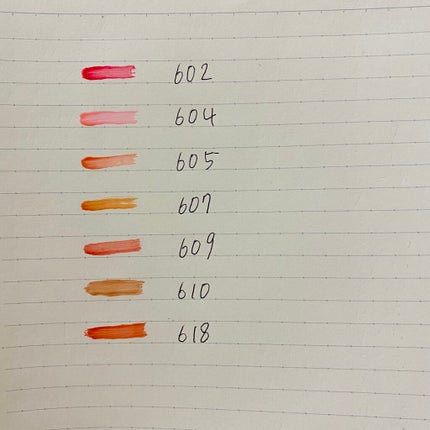 602
604
605
607
609
610
618